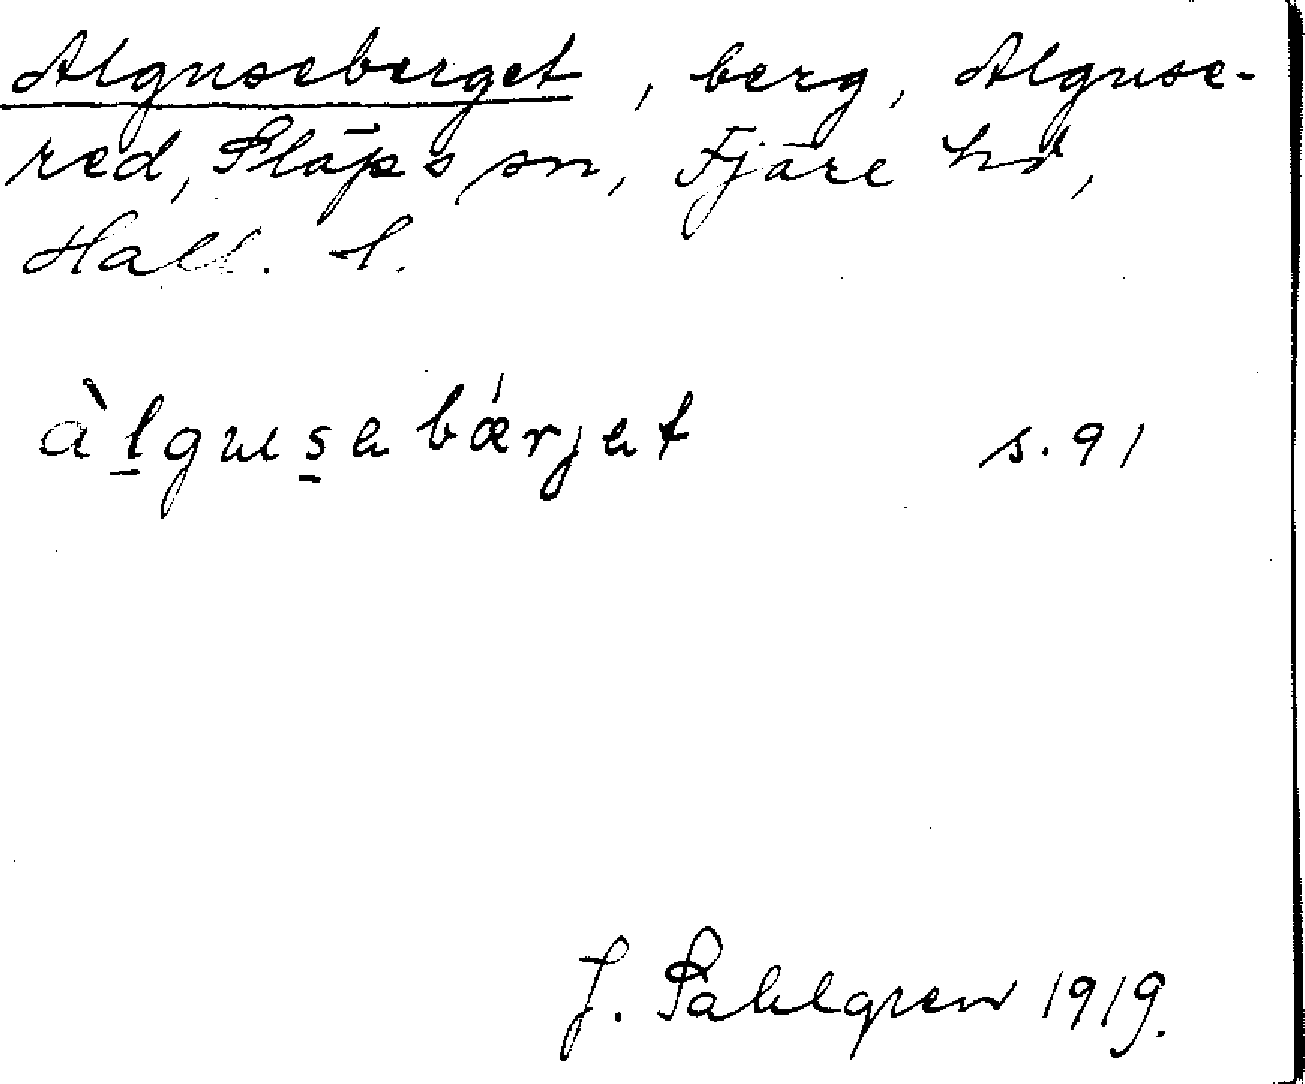 Alguseberget, berg, Alguse-
red, Släps sn, Fjäre hd,
Hall. l.
àlgusebǽrjet s. 91
J. Sahlgren 1919.